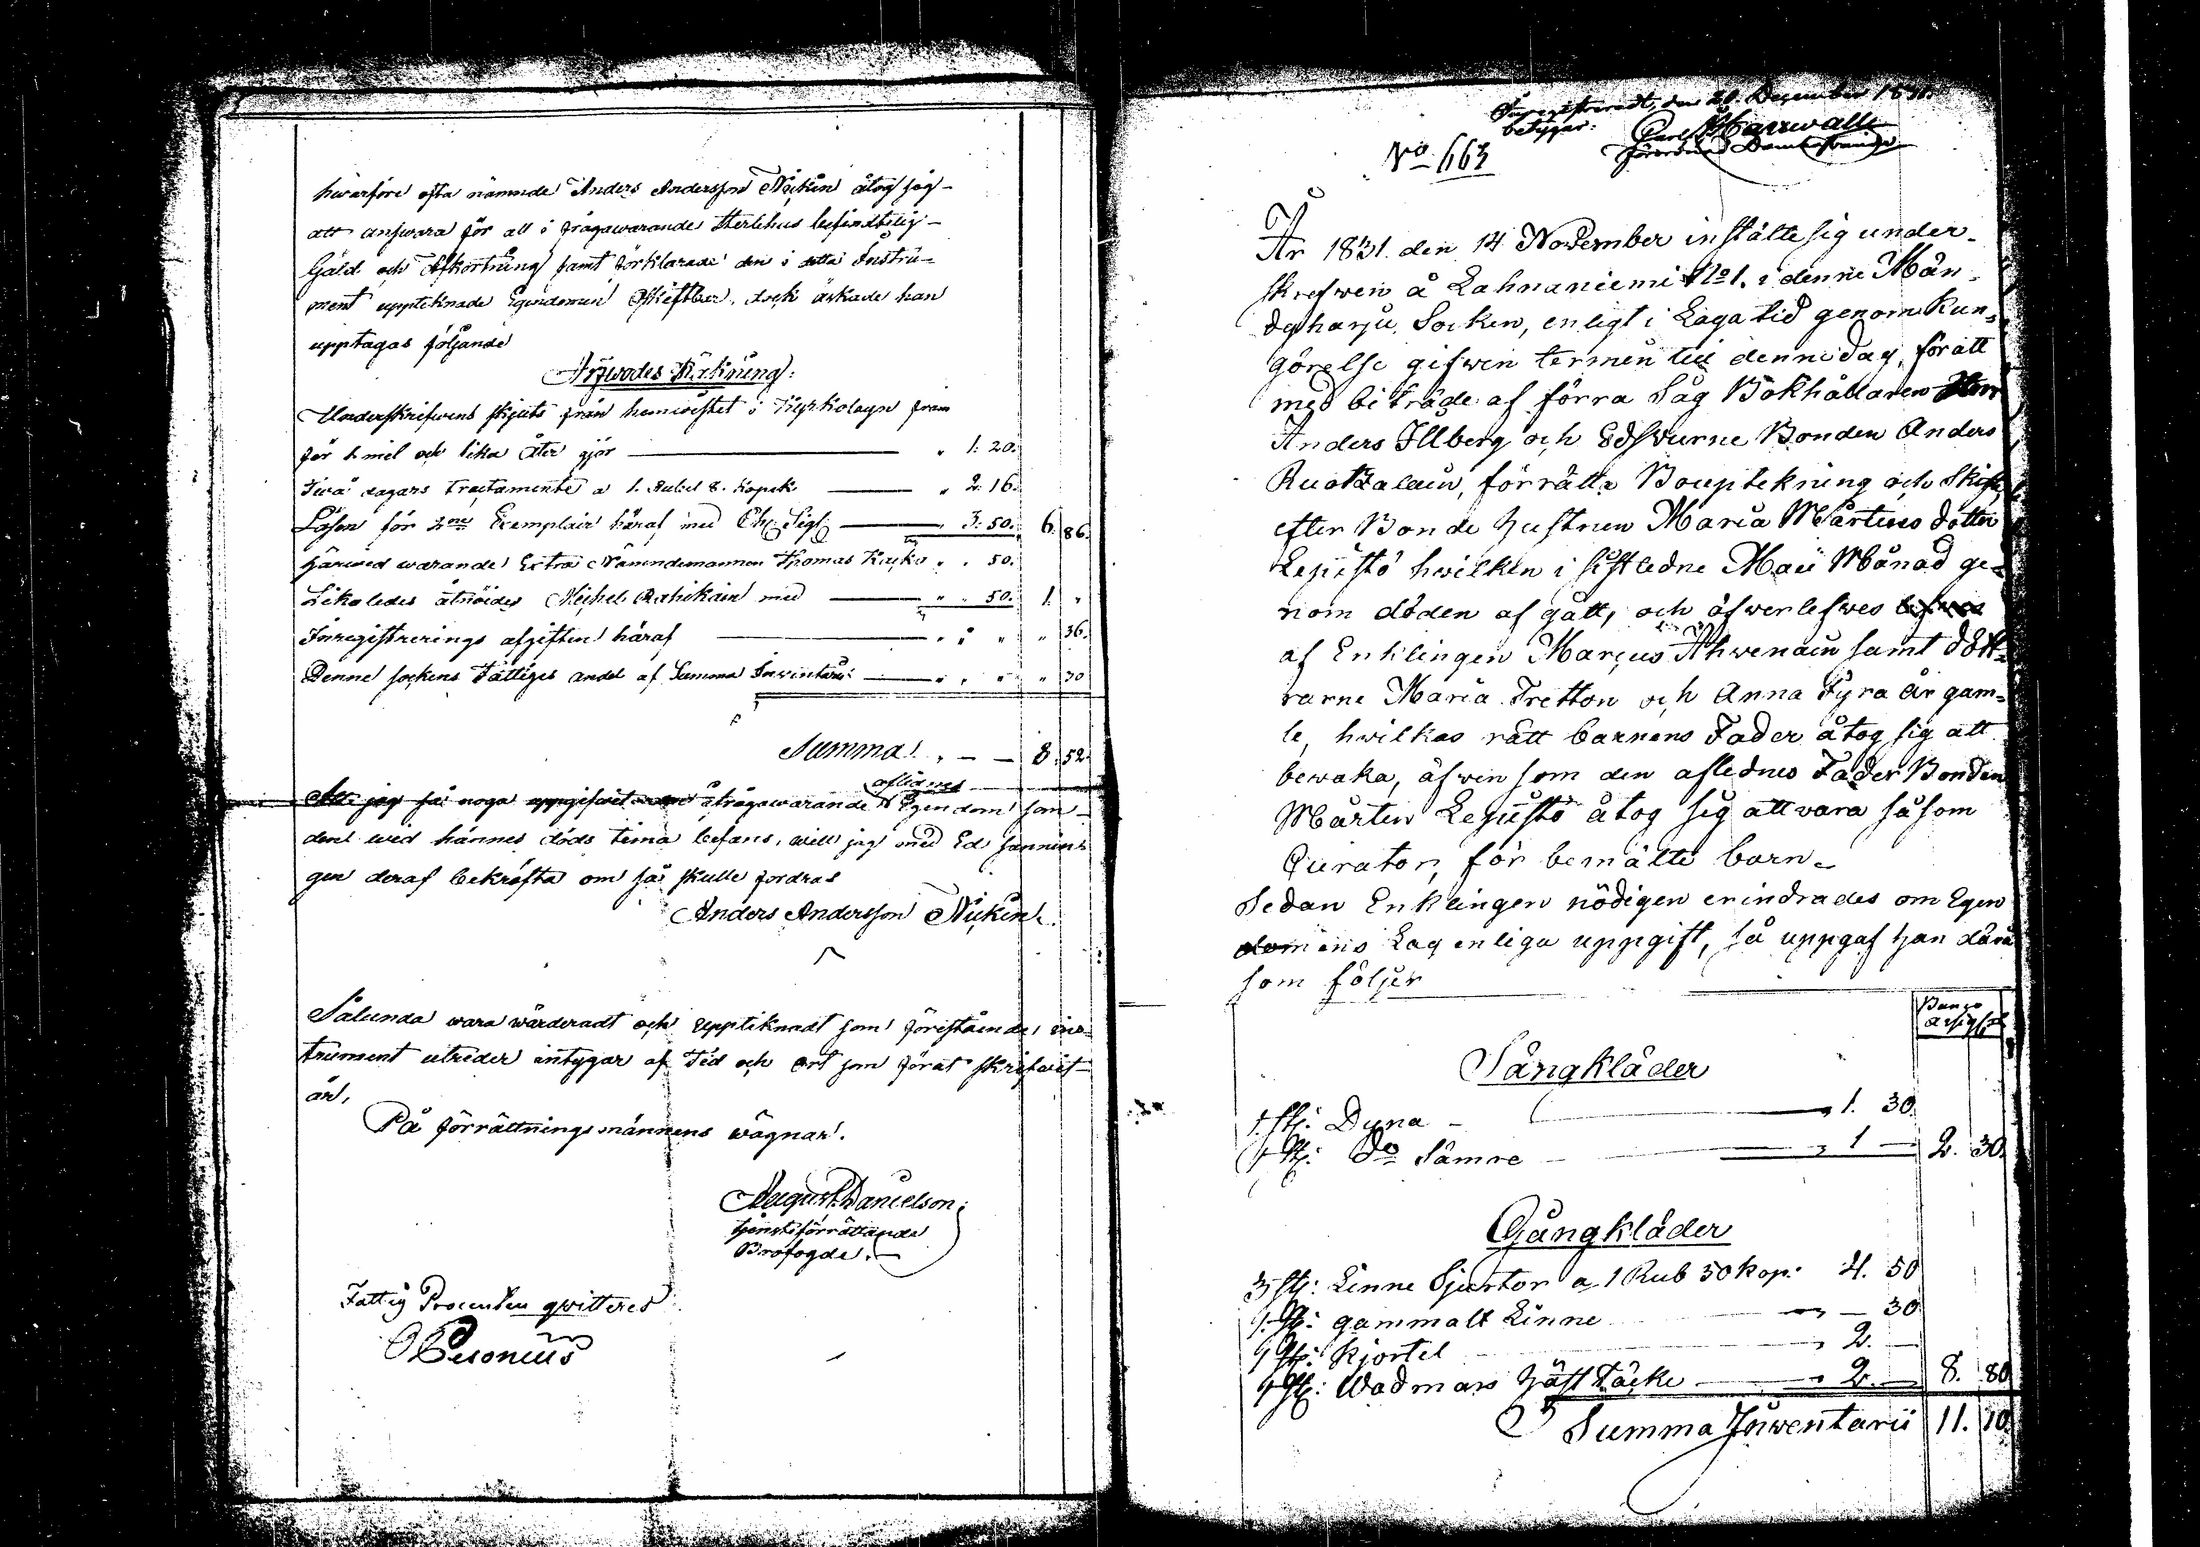 hwarföre ofta nämnde Anders Andersson Näikin åtog sig
att answara för all i frågawarande Sterbhus befindtelig
Gäld och Afkortning samt förklarade den i detta Instru-
ment uppteknade Egendomen Oskiftber, dock äskade han
upptagas följande
Arfwodes Räkning:
Underskrifwens skjuts från hemwistet i Kyrkobyn fram
för 1. mil och lika åter gjör " 1: 20.
Twå dagars tractamente a 1. Rubel 8. Kopek " 2. 16.
Lösen för 2ne Exemplair häraf med Ch. Sigl. " 3. 50. 6. 86.
Härwid warande Extra Nämndemannen Thomas " . 50.
Likaledes åtnöides Michel Rahikain med " " 50. 1. "
Inregistrerings afgiften häraf " " " " 36.
Denne sockens Fattiges andel af Summa Inwentarii: " " " " 30
Summa " — — 8. 52.
Att jag så noga uppgifwit åfrågawarande aflidnes Egendom som
den wid hännes döds tima befans, will jag med Ed sannin-
gen deraf bekräfta om så skulle fordras
Anders Andersson Näikin.
Sålunda wara wärderadt och uppteknadt som föreståinde ins-
trument utreder intygar af Tid och ort som förut skrifwit
är,
På förrättningsmännens wägnar.
August Danielson.
tjensteförrättande
Brofogde.
Fattig Procenten qwitteres
Inregistreradt, den 20. December 1831.
betygar:
Carl
No 663
År 1831. den 14 November instälte sig under-
skrefwen å Lahnaniemi No 1. i denne Män-
dyharju Socken, enligt i Laga tid genom Kun-
görelse gifwen termen till denne dag, för att
med biträde af förra Såg Bokhållaren Herr
Anders Illberg och Edsvurne Bonden Anders
Ruotzalain, förrätta Bouptekning och Skifte
efter Bonde Hustrun Maria Mårtens dotter
Lepistö hwilken i sistledne Maii Månad ge-
nom döden af gått, och öfwerlefwes
af Enklingen Marcus Ahwenain samt dött-
rarne Maria Tretton och Anna Fyra år gam-
le, hwilkas rätt barnens Fader åtog sig att
bewaka, äfwen som den aflednes Fader Bonden
Mårten Lepistö åtog sig att vara såsom
Curator, för bemälte barn.
Sedan Enklingen nödigen erindrades om Egen
domens Lag enliga uppgift, så uppgaf han dårå
som följer
Banco
Assign:
Sängkläder
1 st: Dyna " 1. 30.
1 st: Do Sämre " 1 — 2. 30.
Gångkläder
3 st: Linne Sjortor a 1 Rub 50 kop: 4. 50
1 st: gammalt Linne " — 30
1 st: kjortel " 2. —
1 st: Wadmars Häst Täcke " 2. — 8. 80
Summa Inwentarii 11. 10.